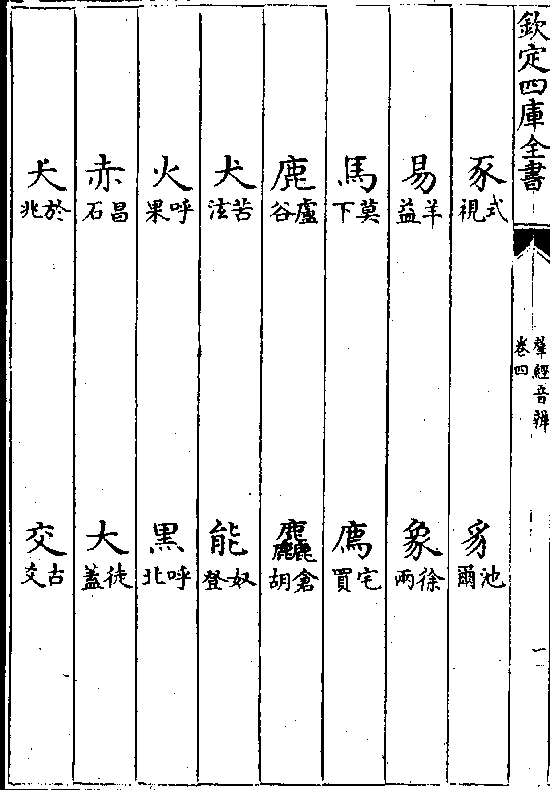 欽定四庫全書
羣經音辨
卷四
一
豕式視 豸池爾
易羊益 象徐兩
馬莫下 廌宅買
鹿盧谷 麤倉胡
犬苦泫 能奴登
火呼果 黑呼北
赤昌石 大徒蓋
夭於兆 交古爻